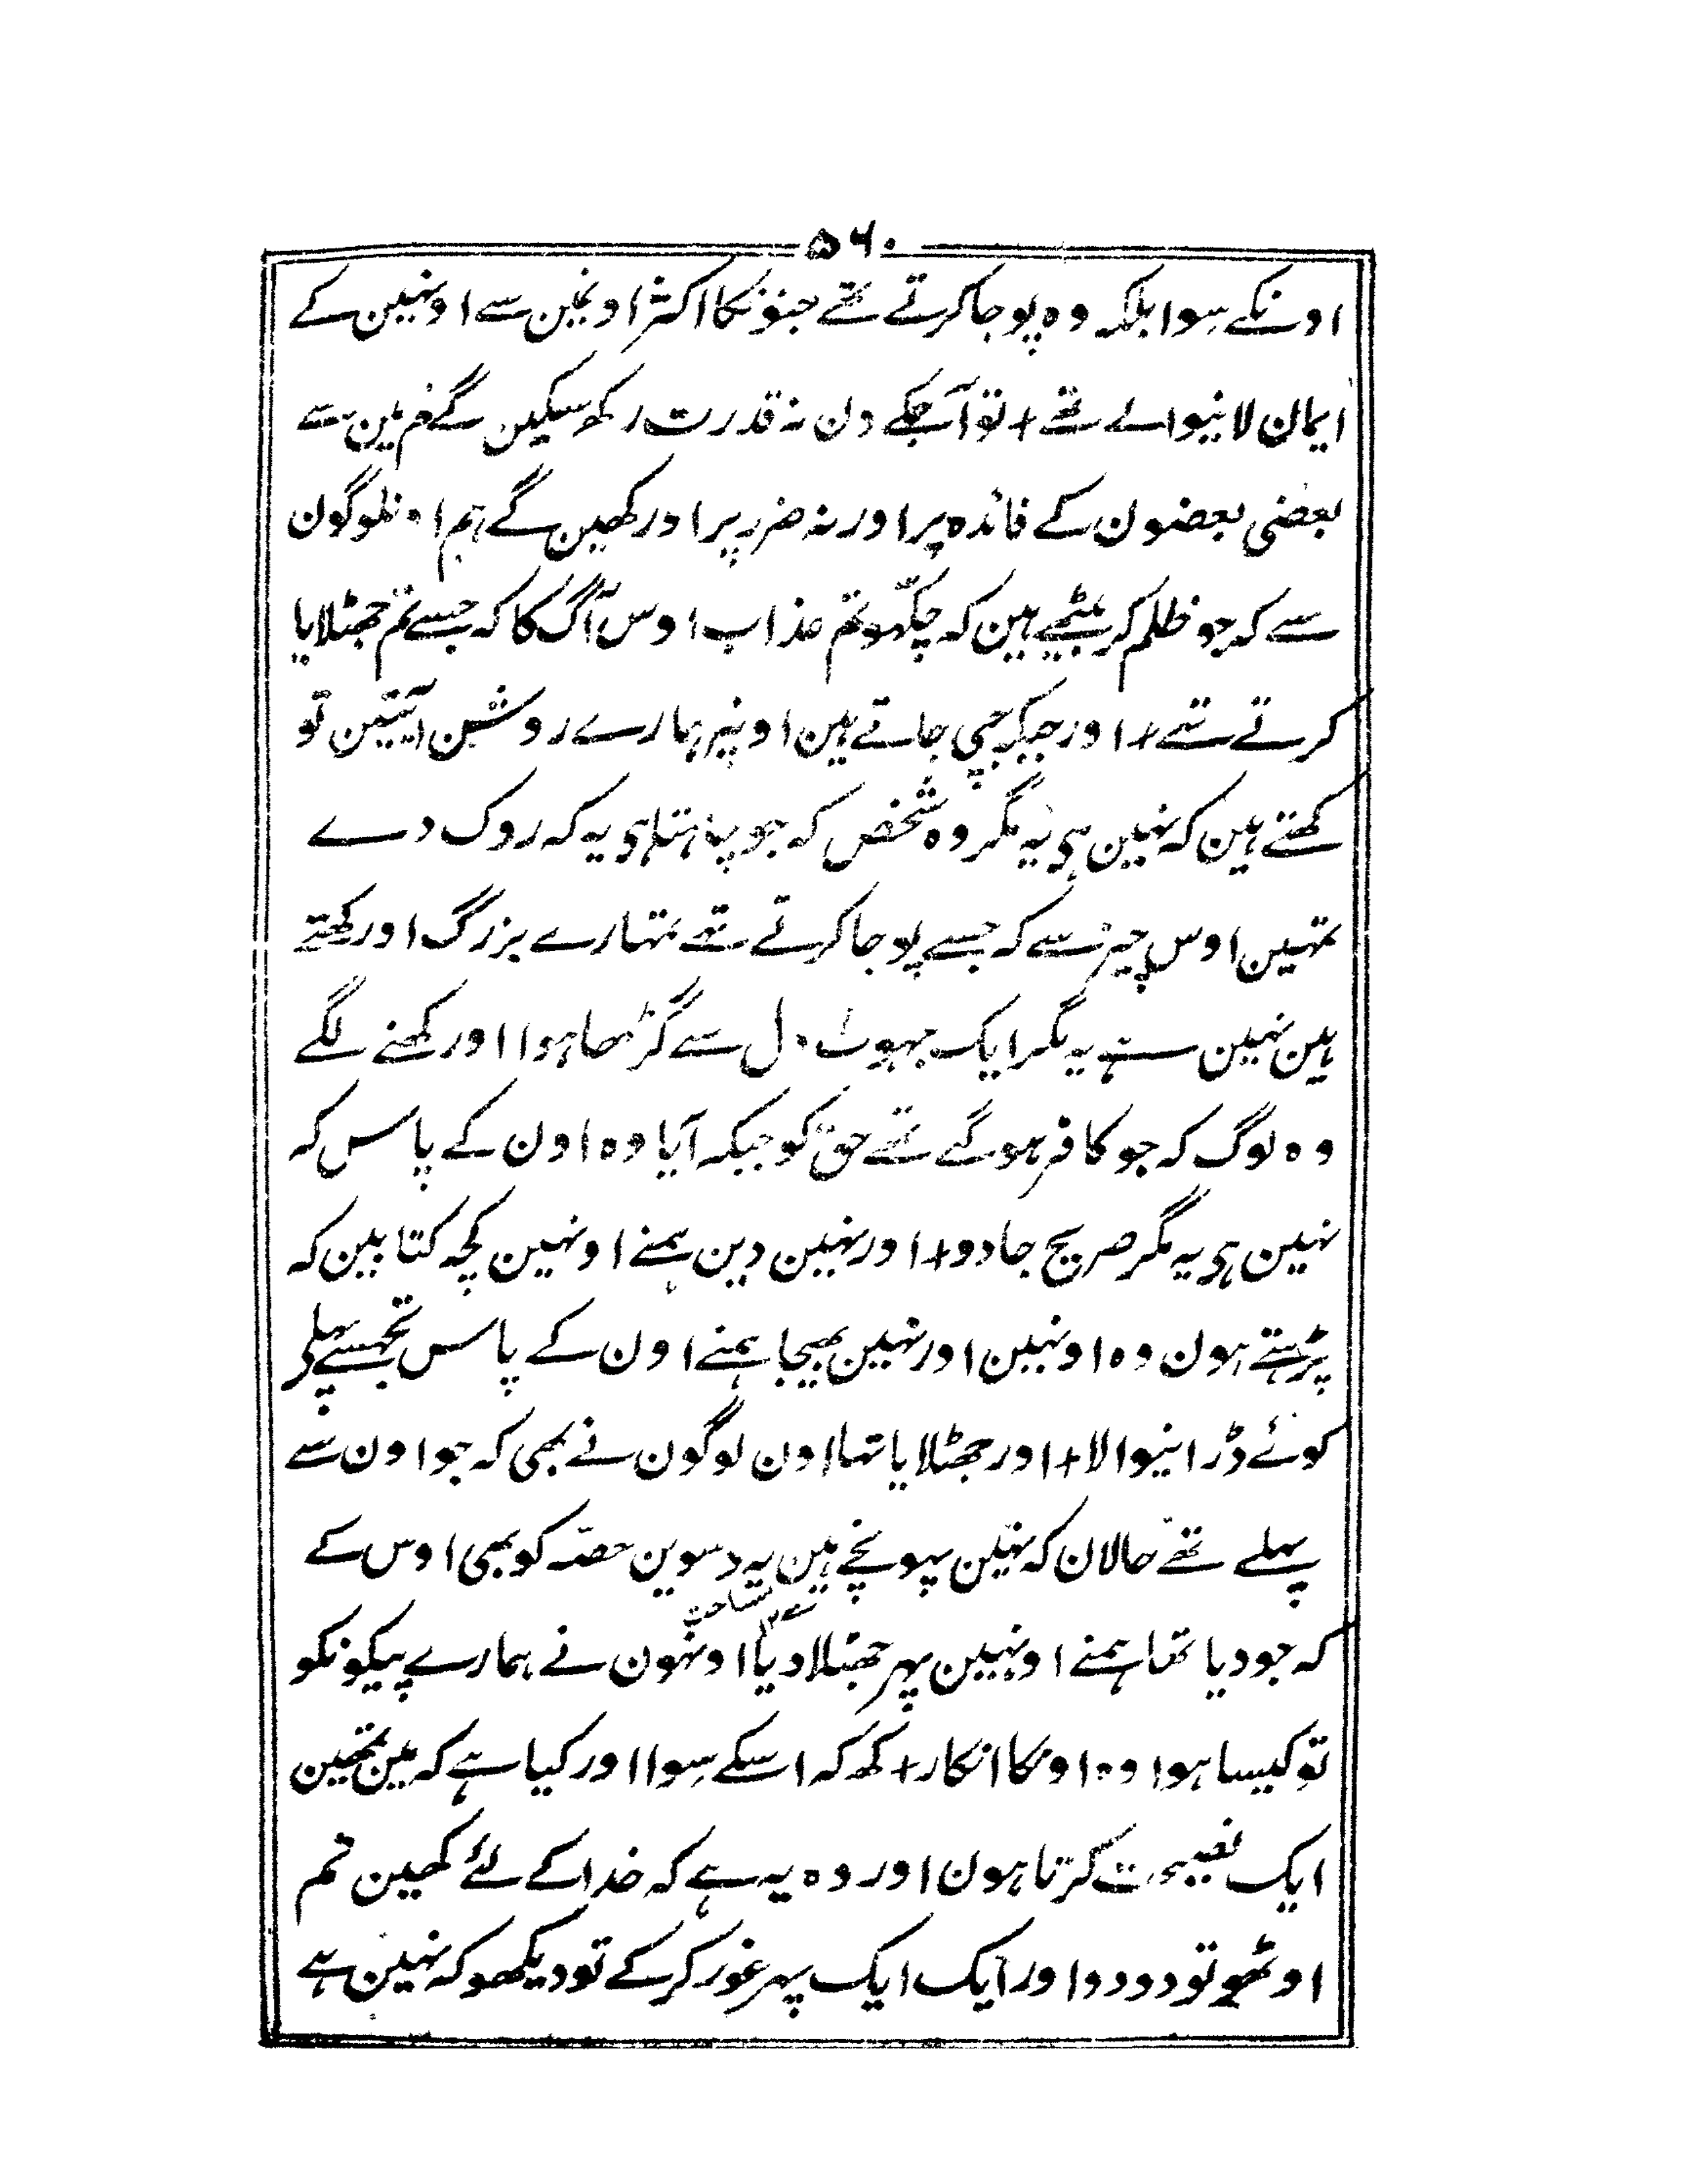 ۵۶۰
اونکے سوا بلکہ وہ پوجا کرتے تھے جنونکا اکثر اونمین سے اونہین کے
ایمان لانیوالے تھے + تو آجکے دن نہ قدرت رکھ سیکین گے تم مین سے
بعضی بعضون کے فائدہ پر اور نہ ضرر پر اور کھین گے ہم اونلوگون
سے کہ جو ظلم کر بیٹھے ہین کہ چکّہو تم عذاب اوس آگ کا کہ جسے تم جھٹلایا
کرتے تہے + اور جبکہ جپی جاتے ہین اونپر ہمارے روشن آیتین تو
کھتے ہین کہ نہین ہی یہ مگر وہ شخص کہ جو چاہتا ہی یہ کہ روک دے
تمہین اوس چیز سے کہ جسے پوجا کرتے تھے تمہارے بزرگ اور کھتے
ہین نہین ہے یہ مگر ایک جہوٹ دل سے گڑھا ہوا اور کھنے لگے
وہ لوگ کہ جو کافر ہو گئے تھے حق کو جبکہ آیا وہ اون کے پاس کہ
نہین ہی یہ مگر صریح جادو + اور نہین دین ہمنے اونہین کچہ کتابین کہ
پڑہتے ہون وہ اونہین اور نہین بھیجا ہمنے اون کے پاس تجہسے پہلے
کوئے ڈرانیوالا + اور جھٹلایا تہا اون لوگون نے بھی کہ جو اون سے
پہلے تھے حالان کہ نہین پہونچے ہین یہ دسوین حصّہ کو بھی اوس کے
کہ جو دیا تھا ہمنے اونہین پہر جھٹلا دیا اونہون نے ہمارے پیکونکو
تو کیسا ہوا وہ اونکا انکار + کھ کہ اسکے سوا اور کیا ہے کہ مین تمھین
ایک نصیحت کرتا ہون اور وہ یہ ہے کہ خدا کے لئے کھین تم
اوٹھو تو دو دو اور ایک ایک پہر غور کر کے تو دیکھو کہ نہین ہے